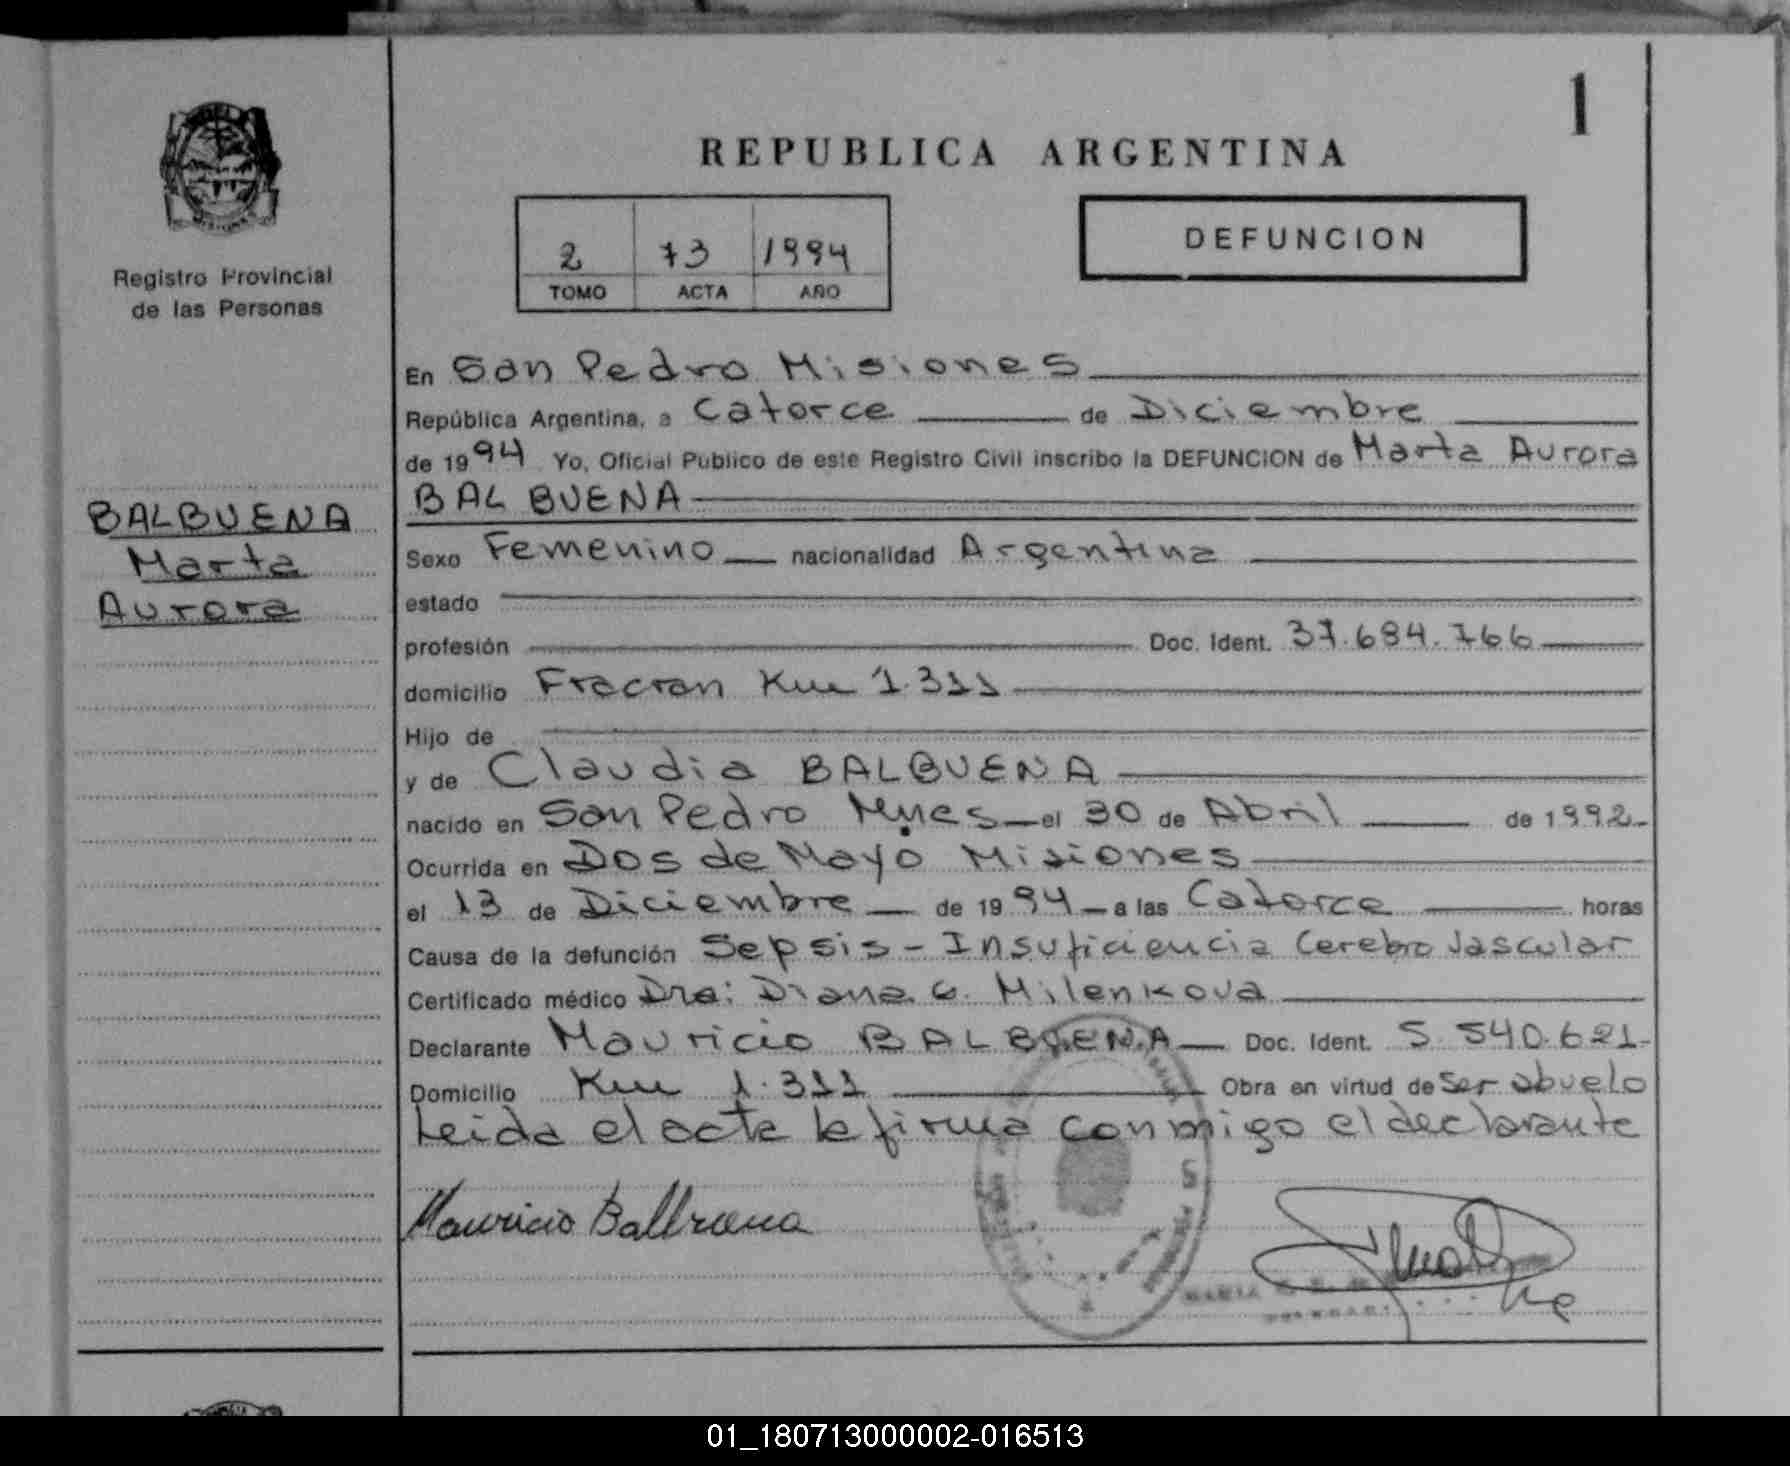 1
REPUBLICA ARGENTINA
2 73 1994
TOMO ACTA AÑO
DEFUNCION
Registro Provincial
de las Personas
BALBUENA
Marta
Aurora
En San Pedro Misiones
República Argentina, a Catorce de Diciembre
de 1994 Yo, Oficial Publico de este Registro Civil inscribo la DEFUNCION de Marta Aurora
BALBUENA
Sexo Femenino nacionalidad Argentina
estado
profesión Doc. Ident. 37.684.766
domicilio Fracran Km 1.311
Hijo de
y de Claudia BALBUENA
nacido en San Pedro Mnes el 30 de Abril de 1992
Ocurrida en Dos de Mayo Misiones
el 13 de Diciembre de 1994 a las Catorce horas
Causa de la defunción Sepsis - Insuficiencia Cerebro Vascular
Certificado médico Dra: Diana G. Milenkova
Declarante Mauricio BALBUENA Doc. Ident. 5.540.621
Domicilio Km 1.311 Obra en virtud de Ser abuelo
Leida el acta la firma conmigo el declarante
Mauricio Balbuena
MARIA
01_180713000002-016513